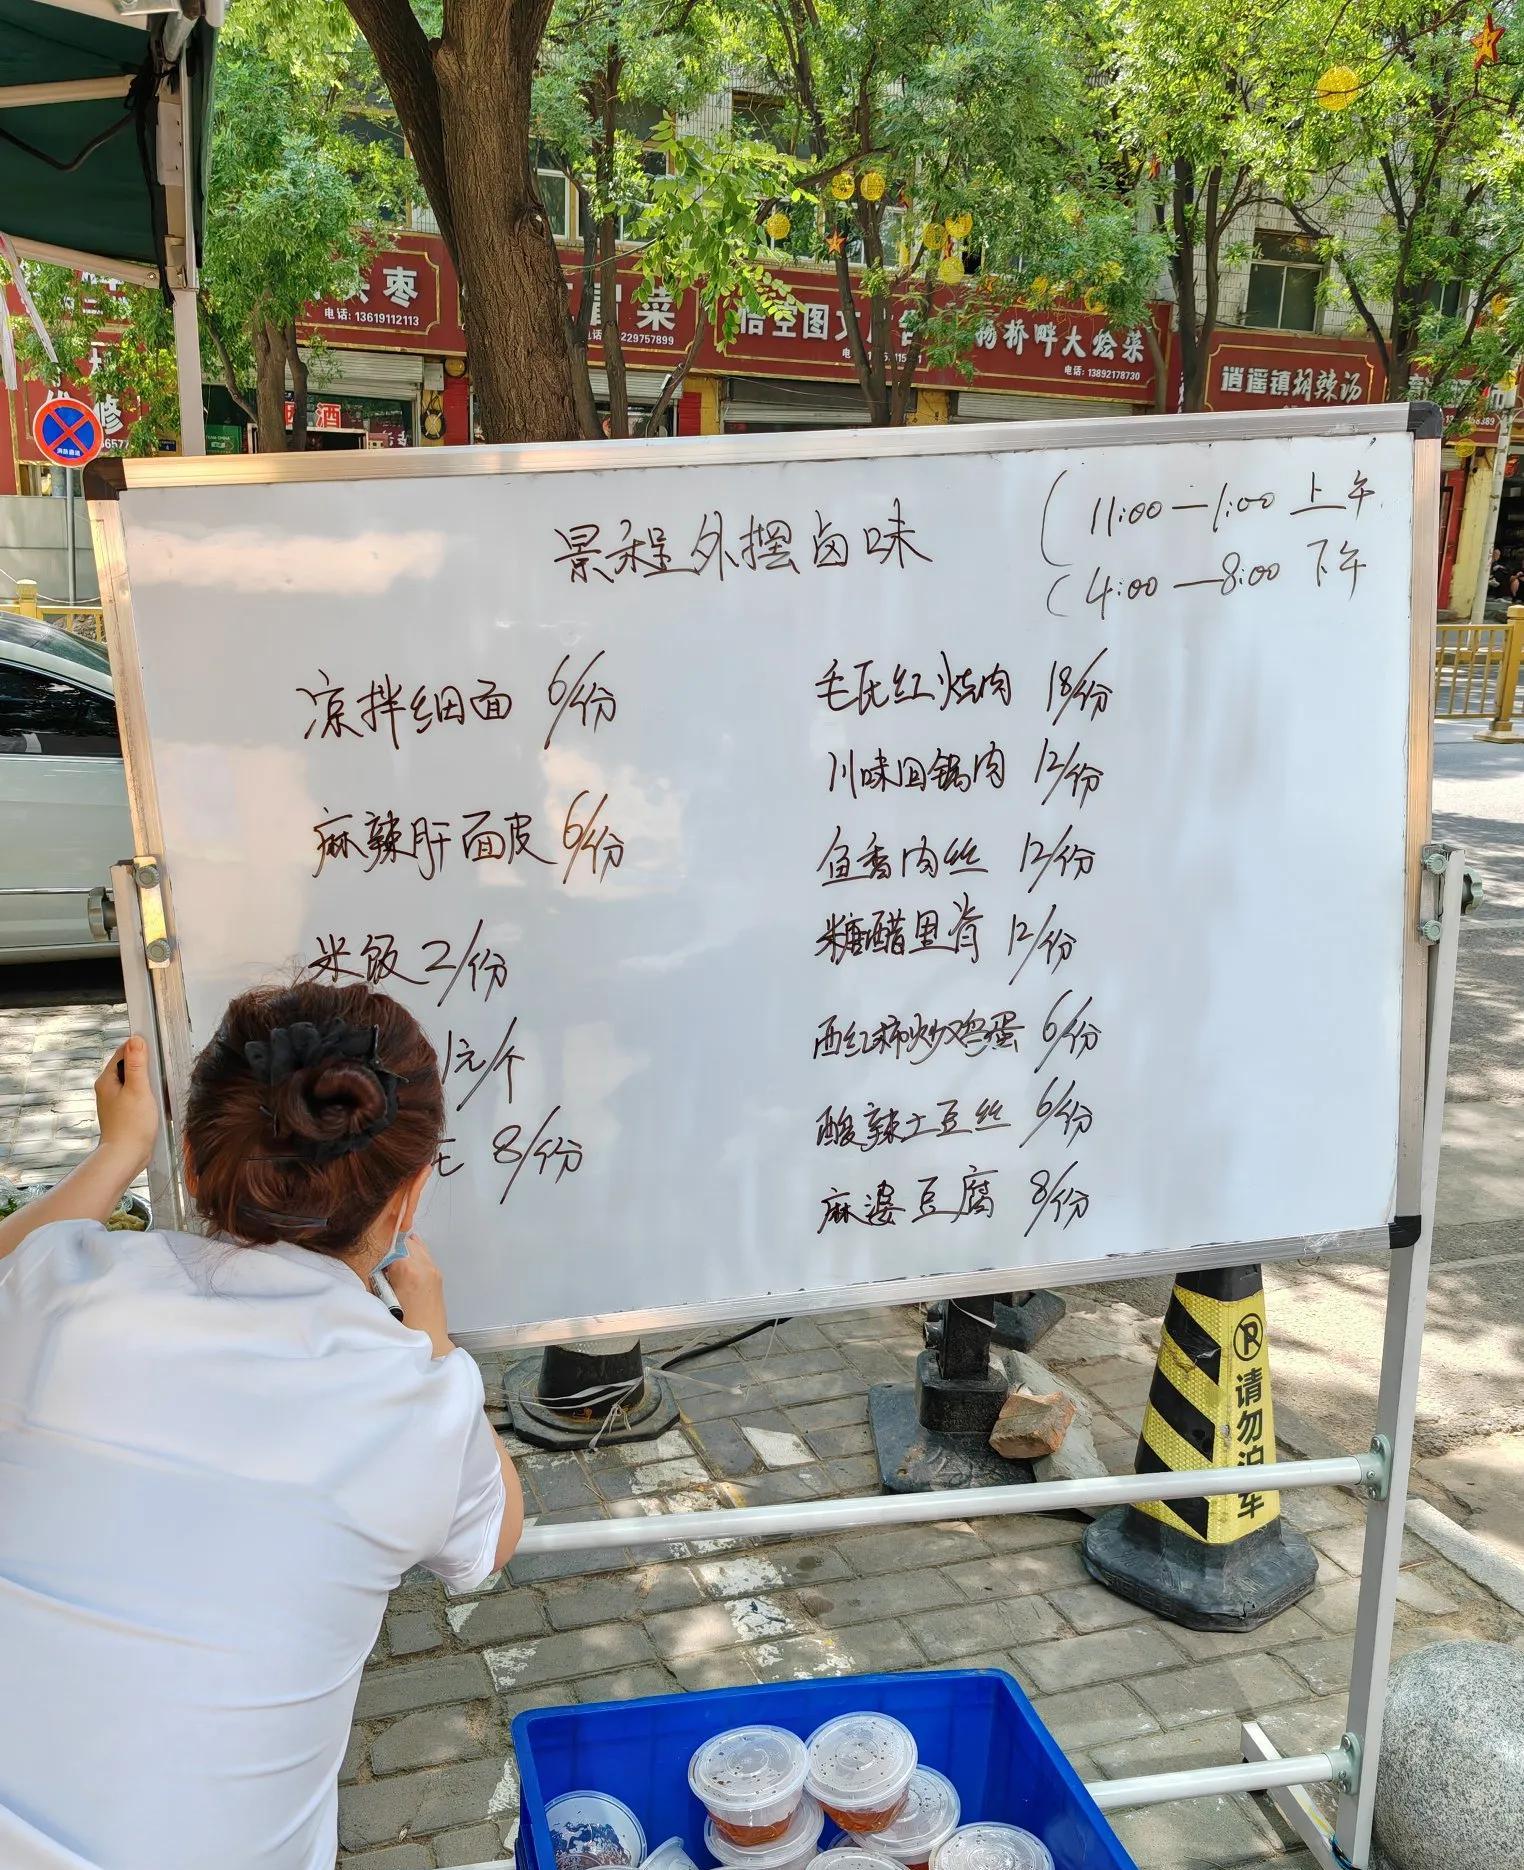 枣
电话: 13619112113
菜
229757899
悟空图文
杨桥畔大烩菜
电话: 13892178730
逍遥镇胡辣汤
修
酒
景程外摆卤味
11:00—1:00 上午
4:00—8:00 下午
凉拌细面 6/份
麻辣肝面皮 6/份
米饭 2/份
1元/个
8/份
毛氏红烧肉 18/份
川味回锅肉 12/份
鱼香肉丝 12/份
糖醋里脊 12/份
西红柿炒鸡蛋 6/份
酸辣土豆丝 6/份
麻婆豆腐 8/份
请勿泊车